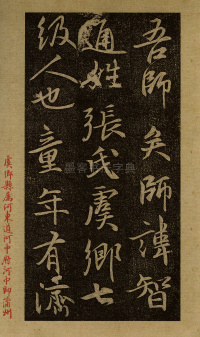 吾師矣師諱智
通姓張氏虞鄉七
級人也童年有
虞鄉縣屬河東道河中府河中即蒲州